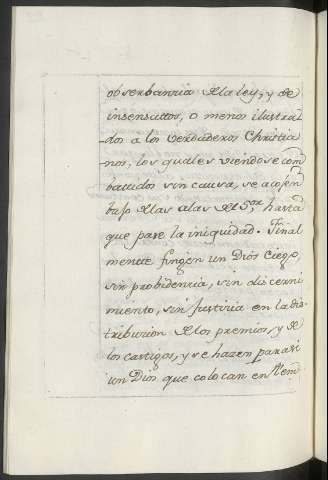 obserbanzia de la ley, y de
insensattos, o menos ilustra-
dos a los verdaderos Christia
nos, los quales viendose com
battidos sin causa, se acojen
bajo de las alas del S.or, hasta
que pase la iniquidad. Final
mente fingen un Dios Ciego,
sin probidenzia, sin discerni
miento, sin justizia en la dis-
tribuzion de los premios, y de
los castigos, y se hazen para si
un Dios que colocan en